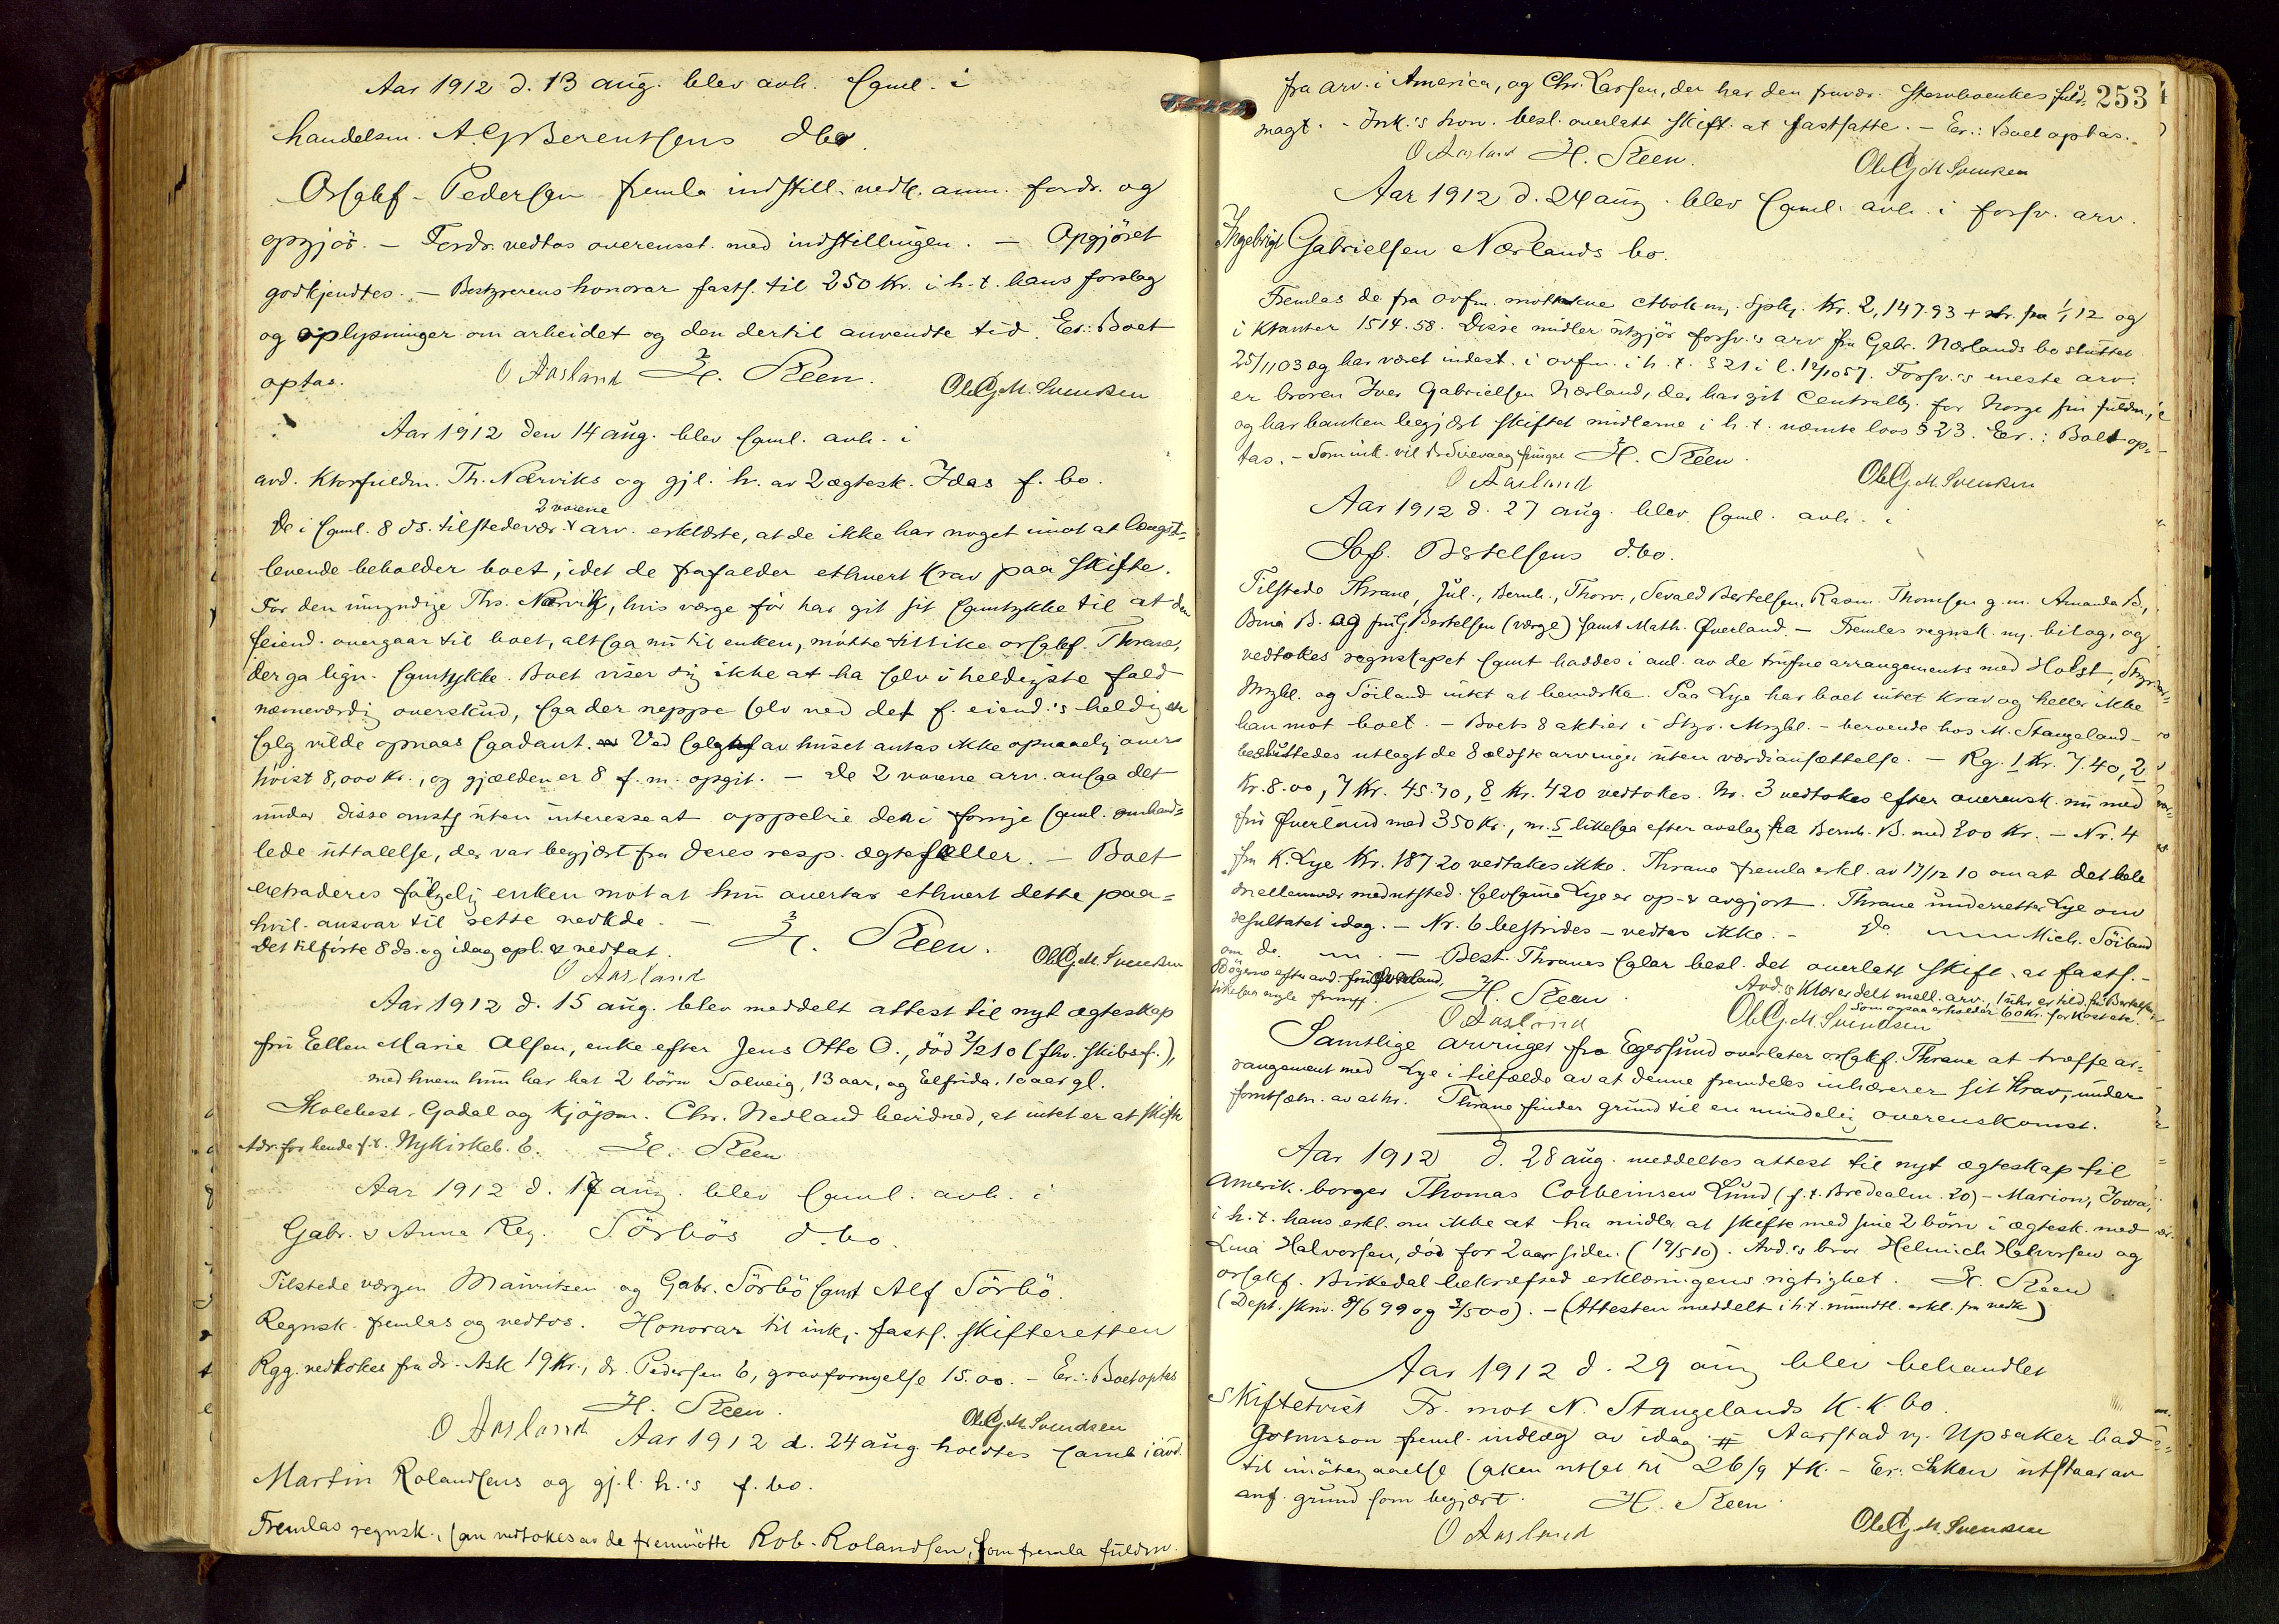 Aar 1912 d. 13 aug. blev avh. saml. i
handelsm. A. G. Berentsens dbo.
Orsakf. Pedersen fremla indstill. vedk. anm. fordr. og
opgjør. – Fordr. vedtas overensst. med indstillingen. – Opgjøret
godkjendtes. – Bestyrerens honorar fasts. til 250 Kr. i h. t. hans forslag
og oplysninger om arbeidet og den dertil anvendte tid. Er.: Boet
optas. O Aasland H. Steen. Ole G. M. Svendsen
Aar 1912 den 14 aug. blev saml. avh. i
avd. Ktorfuldm. Th. Nærviks og gjl. h. av 2 ægtesk. Idas f. bo.
De i saml. 8 ds. tilstedevær. 2 voxne arv. erklærte, at de ikke har noget imot at længst-
levende beholder boet, idet de frafalder ethvert krav paa skifte.
For den umyndige Ths. Nærvik, hvis værge før har git sit samtykke til at den
f. eiend. overgaar til boet, altsaa nu til enken, møtte tillike orsakf. Thrane,
der ga lign. samtykke. Boet viser sig ikke at ha selv i heldigste fald
nævneværdig overskud, saa der neppe selv ved det f. eiend.'s heldigste
salg vilde opnaas saadant. Ved salg av huset antas ikke opnaaelig over
høist 8,000 Kr., og gjælden er 8 f. m. opgit. – De 2 voxne arv. ansaa det
under disse omst. uten interesse at oppebie den i forrige saml. omhand-
lede uttalelse, der var begjært fra deres resp. ægtefæller. – Boet
extraderes følgelig enken mot at hun overtar ethvert dette paa=
hvil. ansvar til rette vedkde. –
Det tilførte 8 ds. og idag opl. & vedtat. H. Steen. Ole G. M. Svendsen
O Aasland
Aar 1912 d. 15 aug. blev meddelt attest til nyt ægteskap
fru Ellen Marie Olsen, enke efter Jens Otto O., død 7/2 10 (fhv. skibsf.),
med hvem hun har hat 2 børn Solveig, 13 aar, og Elfrida, 10 aar gl.
Skolebest. Godal og kjøpm. Chr. Nedland bevidned, at intet er at skifte
Adr. for hende f. t. Nykirkeb. 6. H. Steen
Aar 1912 d. 17 aug. blev saml. avh. i
Gabr. & Anna Reg. Sørbøs d. bo.
Tilstede værgen Mauritsen og Gabr. Sørbø samt Alf Sørbø.
Regnsk. fremlas og vedtos. Honorar til ink. fasts. skifteretten
Rgg. vedtokes fra dr. Ask 19 Kr., dr. Pedersen 6, gravfornyelse 15.00. – Er.: Boet optas
H. Steen.
O Aasland Ole G. M. Svendsen
Aar 1912 d. 24 aug. holdtes saml. i avd.
Martin Rolandsens og gj. l. h.'s f. bo.
Fremlas regnsk., som vedtokes av de fremmøtte Rob. Rolandsen, som fremla fuldm.
253
fra arv. i America, og Chr. Larsen, der har den fravær. stervboenkes fuld-
magt. – Ink.'s hon. besl. overlatt skift. at fastsætte. – Er.: Boet optas.
O Aasland H. Steen. Ole G. M. Svendsen
Aar 1912 d. 24 aug. blev saml. avh. i forsv. arv.
Ingebrigt Gabrielsen Nærlands bo.
Fremlas de fra ovfm. mottakne Kr. 2,147.93 + rtr. fra 1/1 12 og
i kontanter 1514.58. Disse midler utgjør forsv.'s arv fra Gabr. Nærlands bo sluttet
25/11 03 og har været indest. i ovfm. i h. t. § 21 i l. 12/10 57. Forsv.'s eneste arv.
er broren Iver Gabrielsen Nærland, der har git Centralb. for Norge sin fuldm.,
og har banken begjært skiftet midlerne i h. t. nævnte lovs § 23. Er.: Boet op-
tas. – Som ink. vil dr. Sirevaag fungere H. Steen.
O Aasland Ole G. M. Svendsen
Aar 1912 d. 27 aug. blev saml. avh. i
Sof. Bertelsens d.bo.
Tilstede Thrane, Jul., Bernh., Thorv., Sevald Bertelsen, Rasm. Thomsen g. m. Amanda B.,
Bina B. og fru G. Bertelsen (værge) samt Math. Øverland. – Fremlas regnsk. m. bilag, og
vedtokes regnskapet samt haddes i anl. av de trufne arrangements med Holst,
Mrgbl. og Söiland intet at bemerke. Paa Lye har boet intet krav og heller ikke
han mot boet. – Boets 8 aktier i Stgr. Mrgbl. – beroende hos M. Stangeland –
besluttedes utlagt de 8 ældste arvinger uten værdiansættelse. – Rg. 1 Kr. 7.40, 2
Kr. 8.00, 7 Kr. 45.30, 8 Kr. 420 vedtokes. Nr. 3 vedtokes efter overensk. nu med
fru Øverland med 350 Kr., nr. 5 likesaa efter avslag fra Bernh. B. med 200 Kr. – Nr. 4
fra K. Lye Kr. 187 20 vedtakes ikke. Thrane fremla erkl. av 17/12 10 om at det hele
mellemvær. med utsted. selvsamme Lye er op- & avgjort. Thrane underretter Lye om
resultatet idag. – Nr. 6 bestrides – vedtas ikke. – Do. Mich. Söiland
om do. – Best. Thranes salær besl. det overlatt skift. at fasts. –
Bøgerne efter avd. fru Øverland, H. Steen. Avd.'s klær er delt mell. arv., 1 uhr er tild. fru Bertelsen,
som ogsaa erholder 60 Kr. for kost etc.
O Aasland Ole G. M. Svendsen
Samtlige arvinger fra Egersund overlater orsakf. Thrane at træffe ar-
rangement med Lye i tilfælde av at denne fremdeles inhærerer sit krav, under
forutsætn. av at hr. Thrane finder grund til en mindelig overenskomst.
Aar 1912 d. 28 aug. meddeltes attest til nyt ægteskap til
Amerik. borger Thomas Colbeinsen Lund (f. t. Bredealm. 20) – Marion, Iowa,
i h. t. hans erkl. om ikke at ha midler at skifte med sine 2 børn i ægtesk. med
Lina Halvorsen, død for 2 aar siden (19/5 10). Avd.'s bror Helmich Halvorsen og
orsakf. Birkedal bekræfted erklæringens rigtighet. H. Steen
(Dept. skriv. 8/6 99 og 3/5 00). – (Attesten meddelt i h. t. mundtl. erkl. fra vedk.)
Aar 1912 d. 29 aug blev behandlet
Skiftetvist Fr. mot N. Stangelands K. K. bo.
Gotmsson freml. indlæg av idag. Aarstad v. Upsaker bad
til imøtegaaelse saken utsat til 26/9 – Er.: Saken utstaar av
anf. grund som begjært. H. Steen
O Aasland Ole G. M. Svendsen